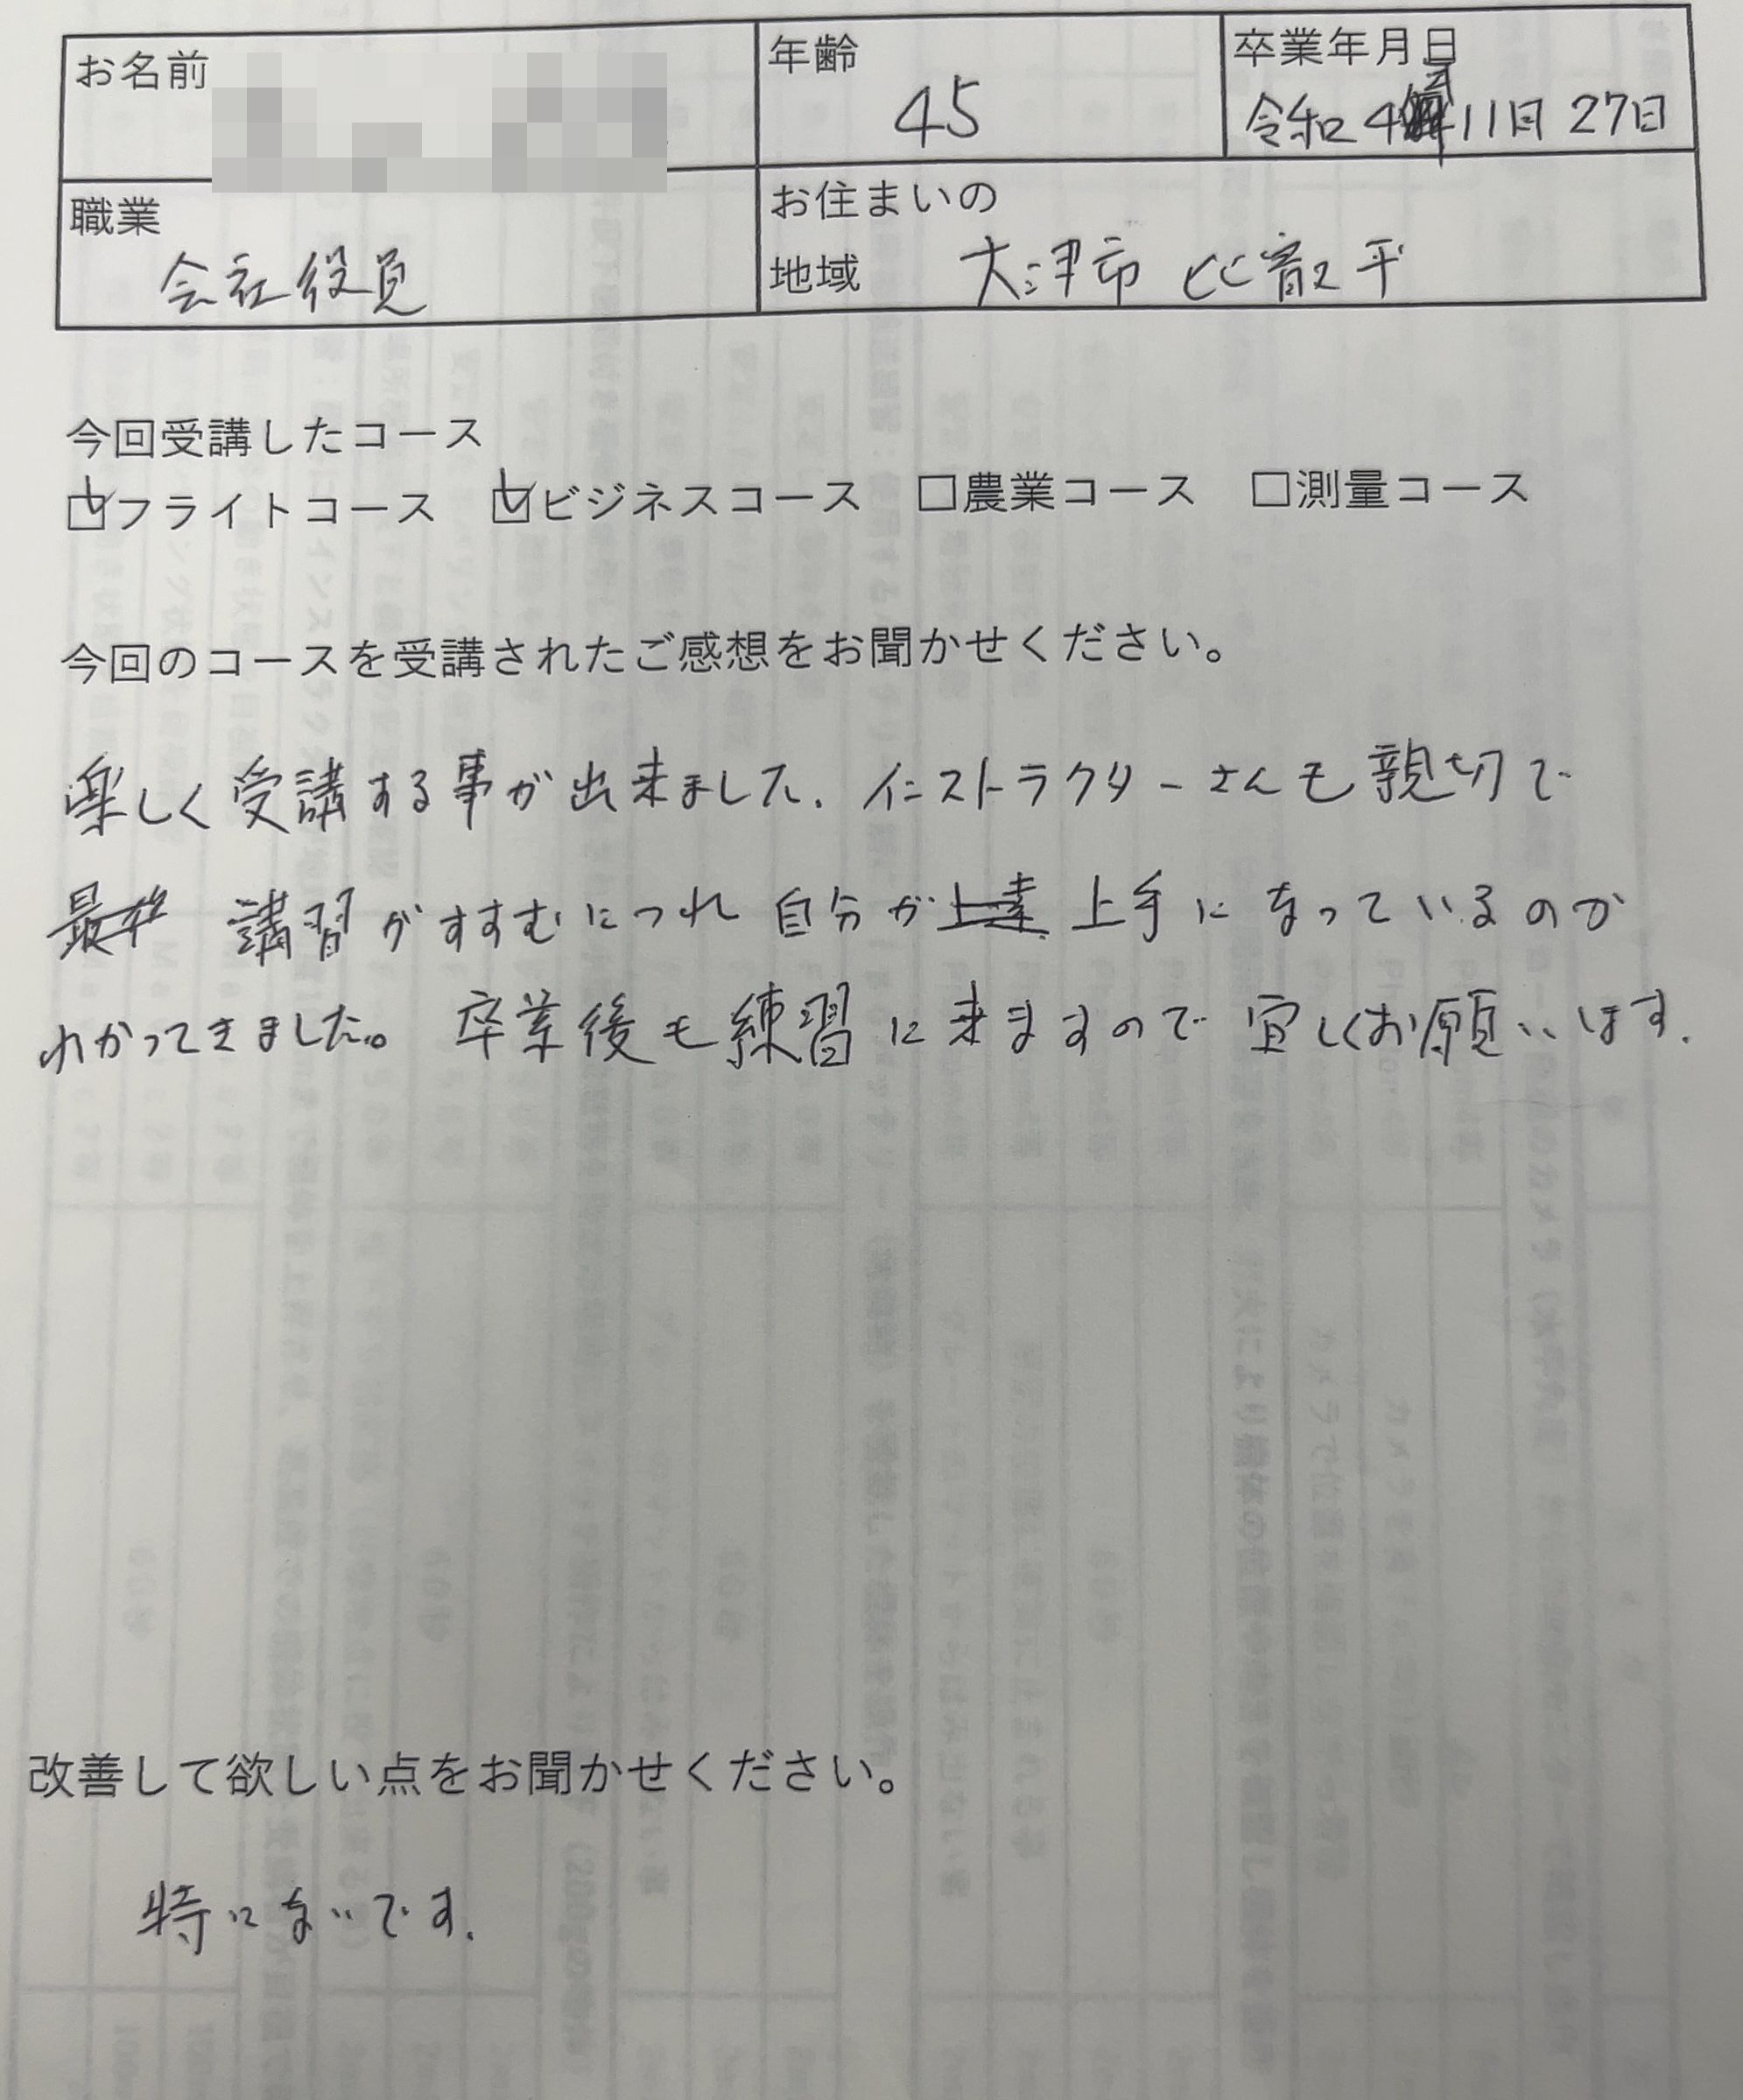 お名前
年齢
45
卒業年月日
令和4年11月27日
職業
会社役員
お住まいの
地域
大津市 比叡平
今回受講したコース
☑フライトコース ☑ビジネスコース □農業コース □測量コース
今回のコースを受講されたご感想をお聞かせください。
楽しく受講する事が出来ました. インストラクターさんも親切で
講習がすすむにつれ 自分が 上手になっているのが
わかってきました。 卒業後も練習に来ますので 宜しくお願いします.
改善して欲しい点をお聞かせください。
特にないです.